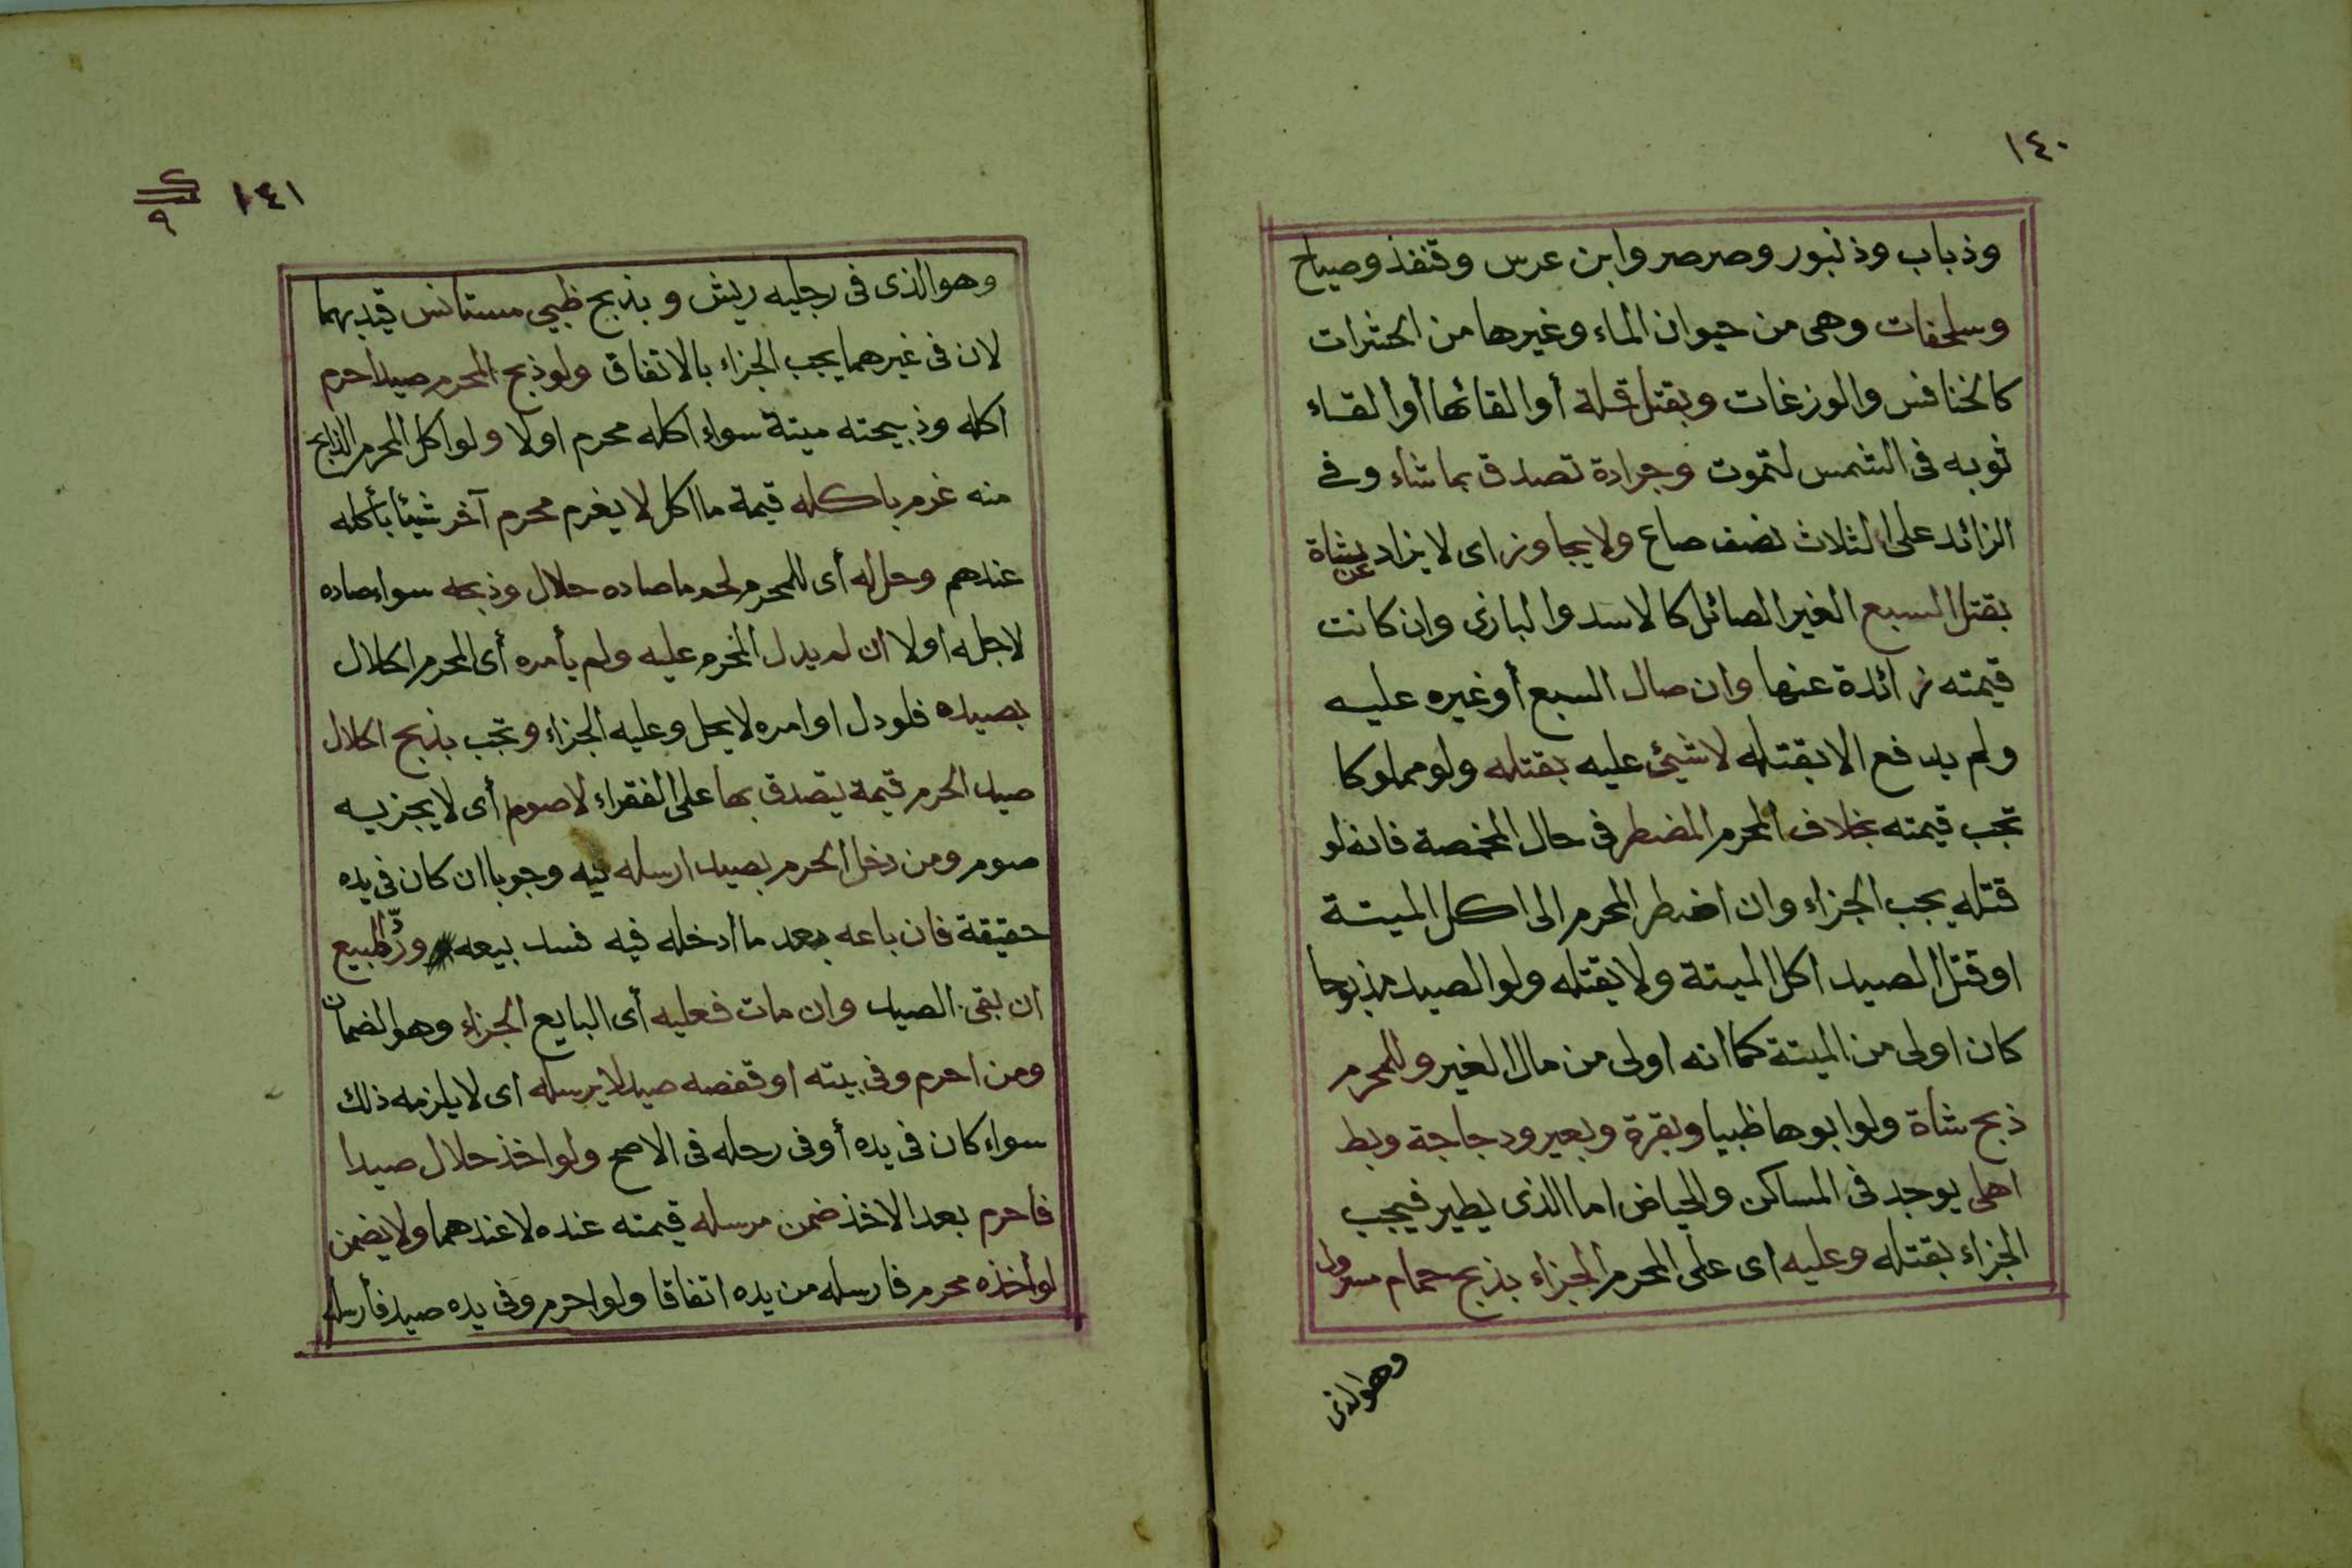 ١٤٠
وذباب وذنبور وصرصر وابن عرس وقنفذ وصياح
وسلحفات وهى من حيوان الماء وغيرها من الحشرات
كالخنافس والوزغات وبقتل قملة أو القائها أو القاء
ثوبه فى الشمس لتموت وجرادة تصدق بما شاء وفى
الزائد على الثلاث نصف صاع ولا يجاوز اى لا يزاد عن شاة
بقتل السبع الغير الصائل كالاسد والبازى وان كانت
قيمته زائدة عنها وان صال السبع أو غيره عليه
ولم يدفع الا بقتله لا شيئ عليه بقتله ولو مملوكا
تجب قيمته بخلاف المحرم المضطر فى حال المخمصة فانه لو
قتله يجب الجزاء وان اضطر المحرم الى اكل الميتة
او قتل الصيد اكل الميتة ولا يقتله ولو الصيد مذبوحا
كان اولى من الميتة كما انه اولى من مال الغير وللمحرم
ذبح شاة ولو ابوها ظبيا وبقرة وبعير ودجاجة وبط
اهلى يوجد فى المساكن والحياض اما الذى يطير فيجب
الجزاء بقتله وعليه اى على المحرم الجزاء بذبح حمام مسرول
وهو الذى
١٤١
٩
وهو الذى فى رجليه ريش و بذبح ظبي مستانس قيد بهما
لان فى غيرهما يجب الجزاء بالاتفاق ولو ذبح المحرم صيدا حرم
اكله وذبيحته ميتة سواء اكله محرم اولا ولو اكل المحرم الذابح
منه غرم باكله قيمة ما اكل لا يغرم محرم آخر شيئا بأكله
عندهم وحل له أى للمحرم لحم ما صاده حلال وذبحه سواء صاده
لاجله اولا ان لم يدل المحرم عليه ولم يأمره أى المحرم الحلال
بصيده فلو دل او امره لا يحل وعليه الجزاء وتجب بذبح الحلال
صيد الحرم قيمة يتصدق بها على الفقراء لا صوم أى لا يجزيه
صوم ومن دخل الحرم بصيد ارسله فيه وجوبا ان كان فى يده
حقيقة فان باعه بعد ما أدخله فيه فسد بيعه وردّ المبيع
ان بقى الصيد وان مات فعليه أى البايع الجزاء وهو الضمان
ومن احرم وفى بيته او قفصه صيد لا يرسله اى لا يلزمه ذلك
سواء كان فى يده أو فى رحله فى الاصح ولو اخذ حلال صيدا
فأحرم بعد الاخذ ضمن مرسله قيمته عنده لا عندهما ولا يضمن
لو أخذه محرم فارسله من يده اتفاقا ولو احرم وفى يده صيد فأرسله